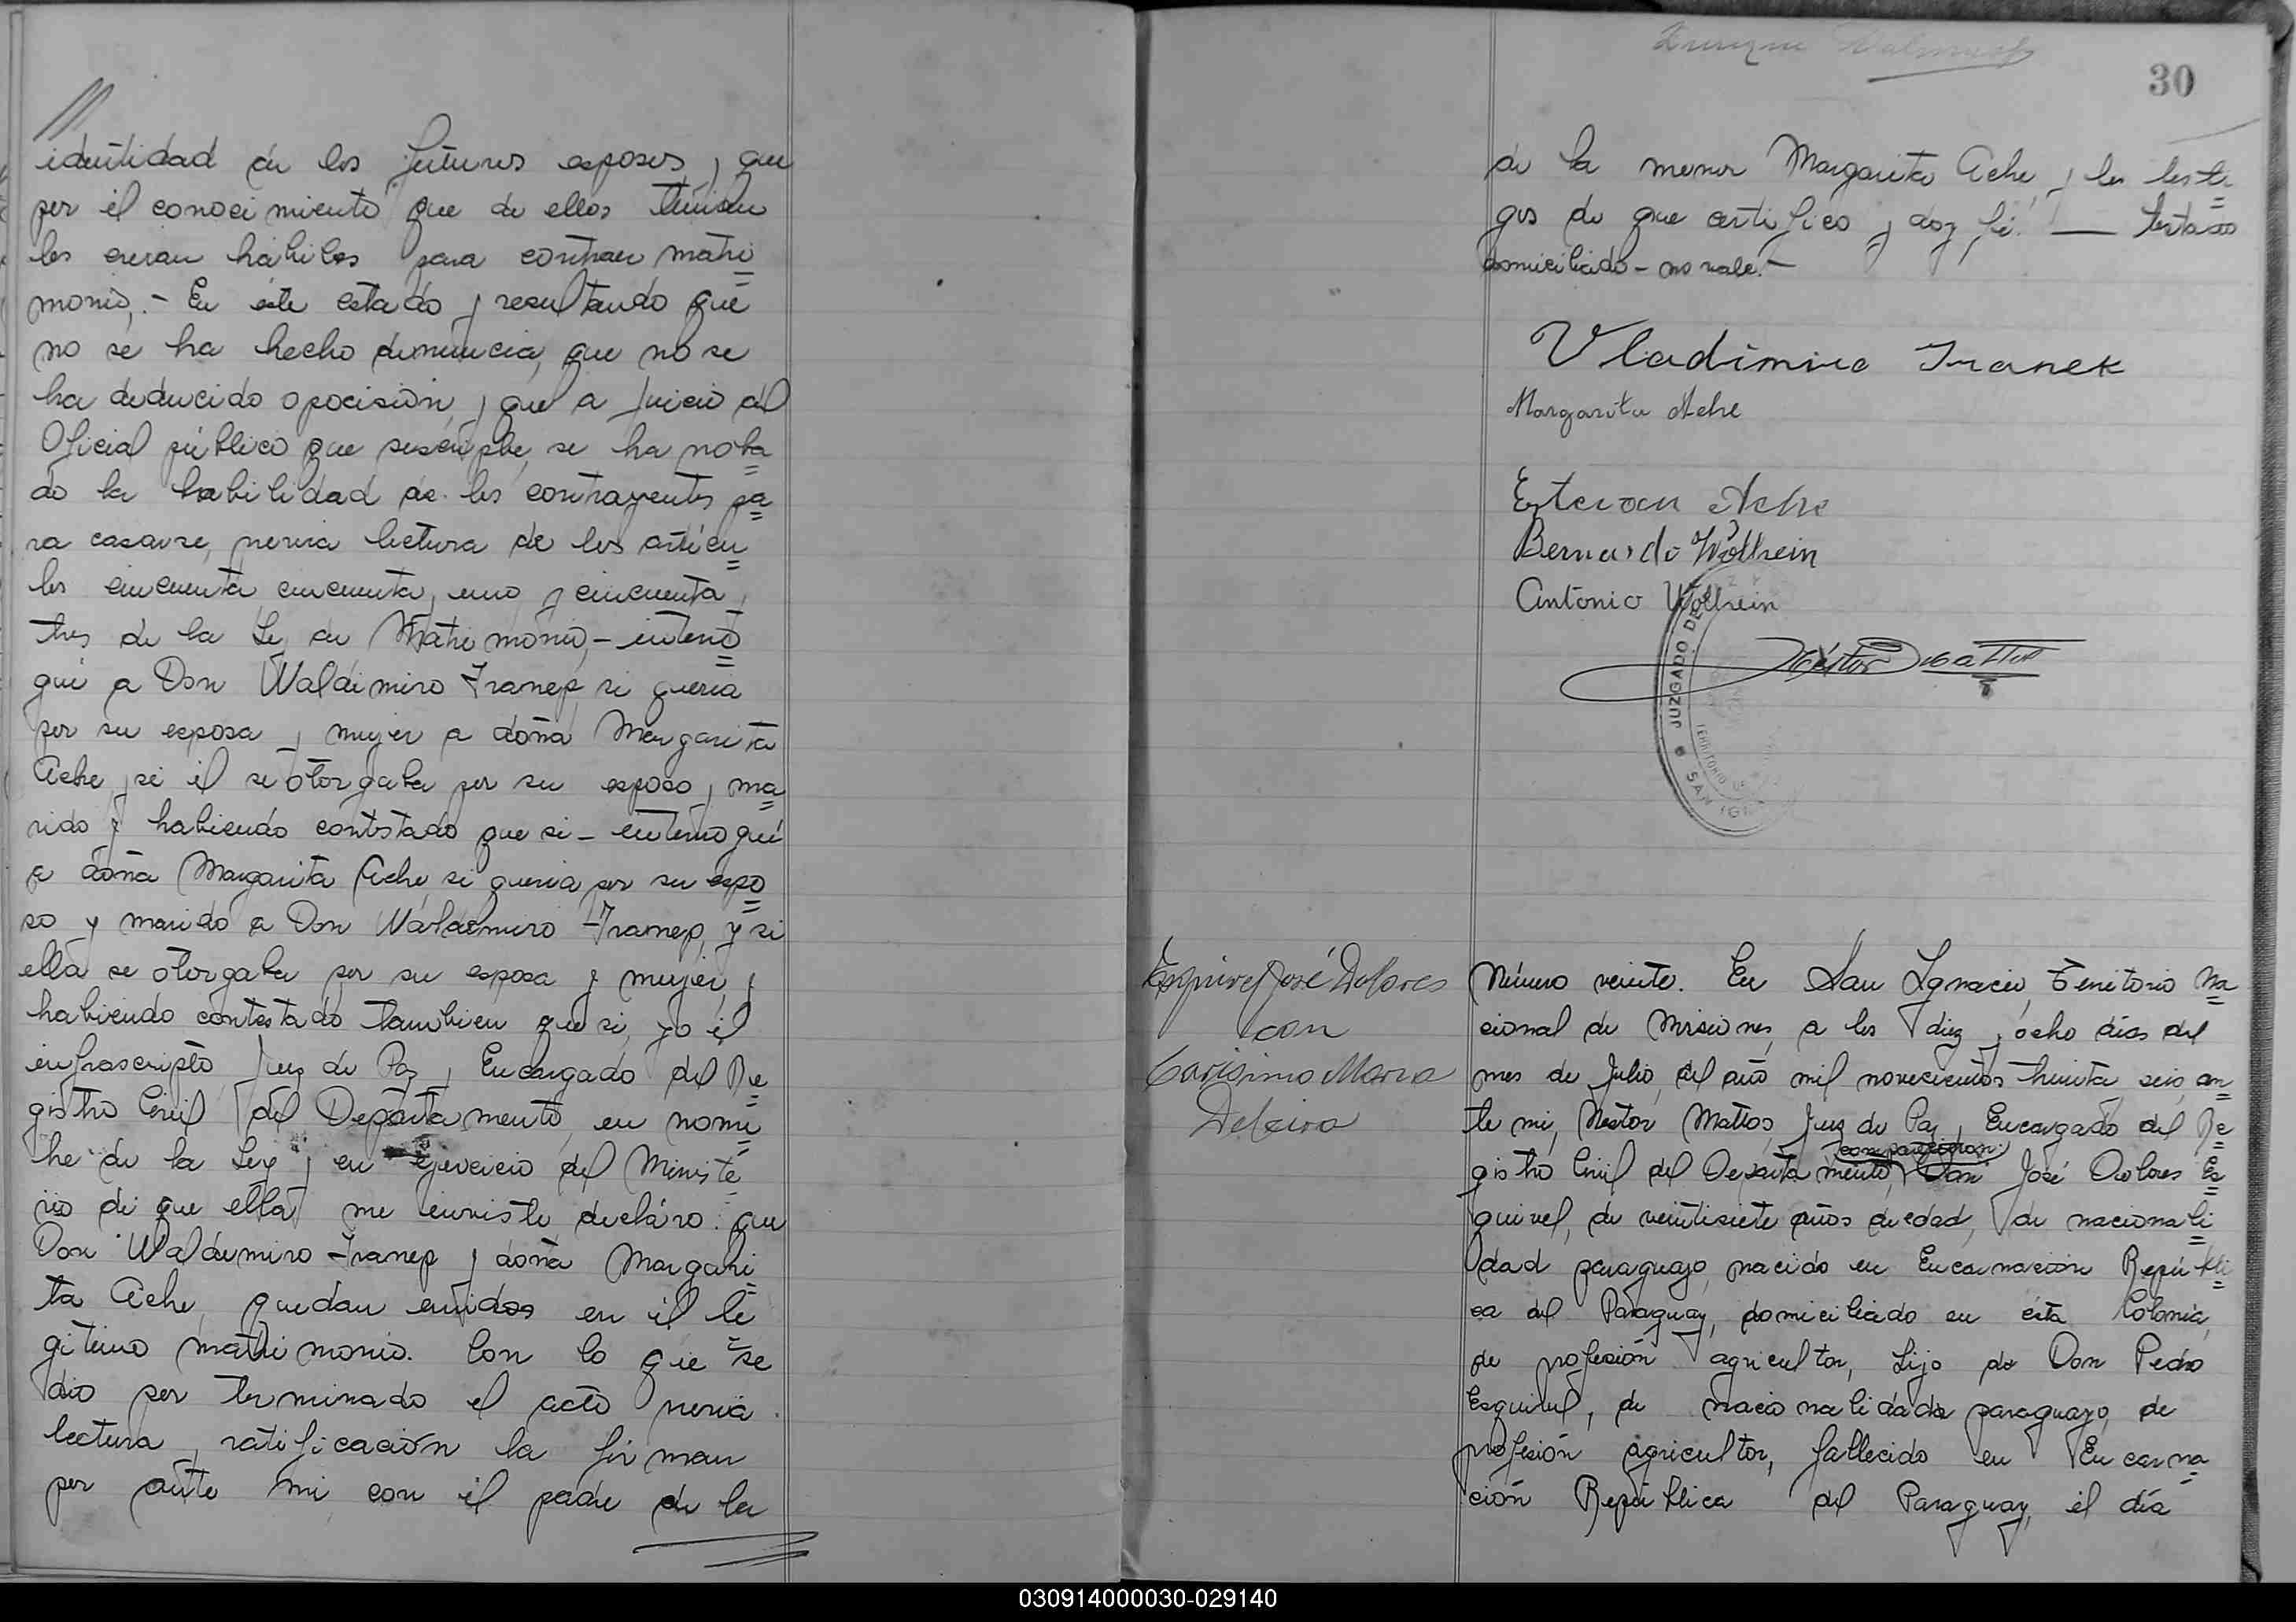 identidad de los futuros esposos y que
por el conocimiento que de ellos tenian
los creian hábiles para contraer matri=
monio.- En este estado y resultando que
no se ha hecho denuncia, que no se
ha deducido oposición y que a juicio del
Oficial público que suscribe, se ha nota=
do la habilidad de los contrayentes pa=
ra casarse, previa lectura de los artícu=
los cincuenta, cincuenta y uno y cincuenta y
tres de la Ley de Matrimonio,- interro=
gué a Don Waldimiro Franep si queria
por su esposa y mujer a doña Margarita
Ache y si él se otorgaba por su esposo y ma=
rido y habiendo contestado que si- interrogué
a doña Margarita Ache si queria por su espo=
so y marido a Don Waldemiro Franep, y si
ella se otorgaba por su esposa y mujer, y
habiendo contestado tambien que si, yo el
infrascripto Juez de Paz y Encargado del Re=
gistro Civil del Departamento, en nom=
bre de la Ley y en ejercicio del Ministe=
rio de que ella me inviste, declaro: que
Don Waldemiro Franep y doña Margari=
ta Ache, quedan unidos en el le=
gitimo matrimonio. Con lo que se
dió por terminado el acto previa
lectura y ratificación la firman
por ante mi con el padre de la
30
de la menor Margarita Ache, y los testi=
gos de que certifico y doy fé. — testado
domiciliado - no vale.-
Vladimiro Franek
Margarita Ache
Estevan Ache
Bernardo Wollrein
Antonio Wollrein
JUZGADO DE
TERRITORIO DE
SAN IG
Esquivel José Dolores
con
Carisimo Maria
Número veinte. En San Ignacio, Territorio Na=
cional de Misiones, a los diez y ocho días del
mes de Julio, del año mil novecientos treinta y seis, an=
te mi, Nestor Mattos, Juez de Paz y Encargado del Re=
comparecieron
gistro Civil del Departamento, Don José Dolores Es=
quivel, de veintisiete años de edad, de nacionali=
dad paraguayo, nacido en Encarnación Repúbli=
ca del Paraguay, domiciliado en ésta Colonia,
de profesión agricultor, hijo de Don Pedro
Esquivel, de nacionalidad paraguayo, de
profesión agricultor, fallecido en Encarna=
ción República del Paraguay, el día
030914000030-029140